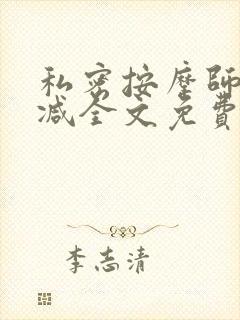 私密按摩師
减全文免費
李志清